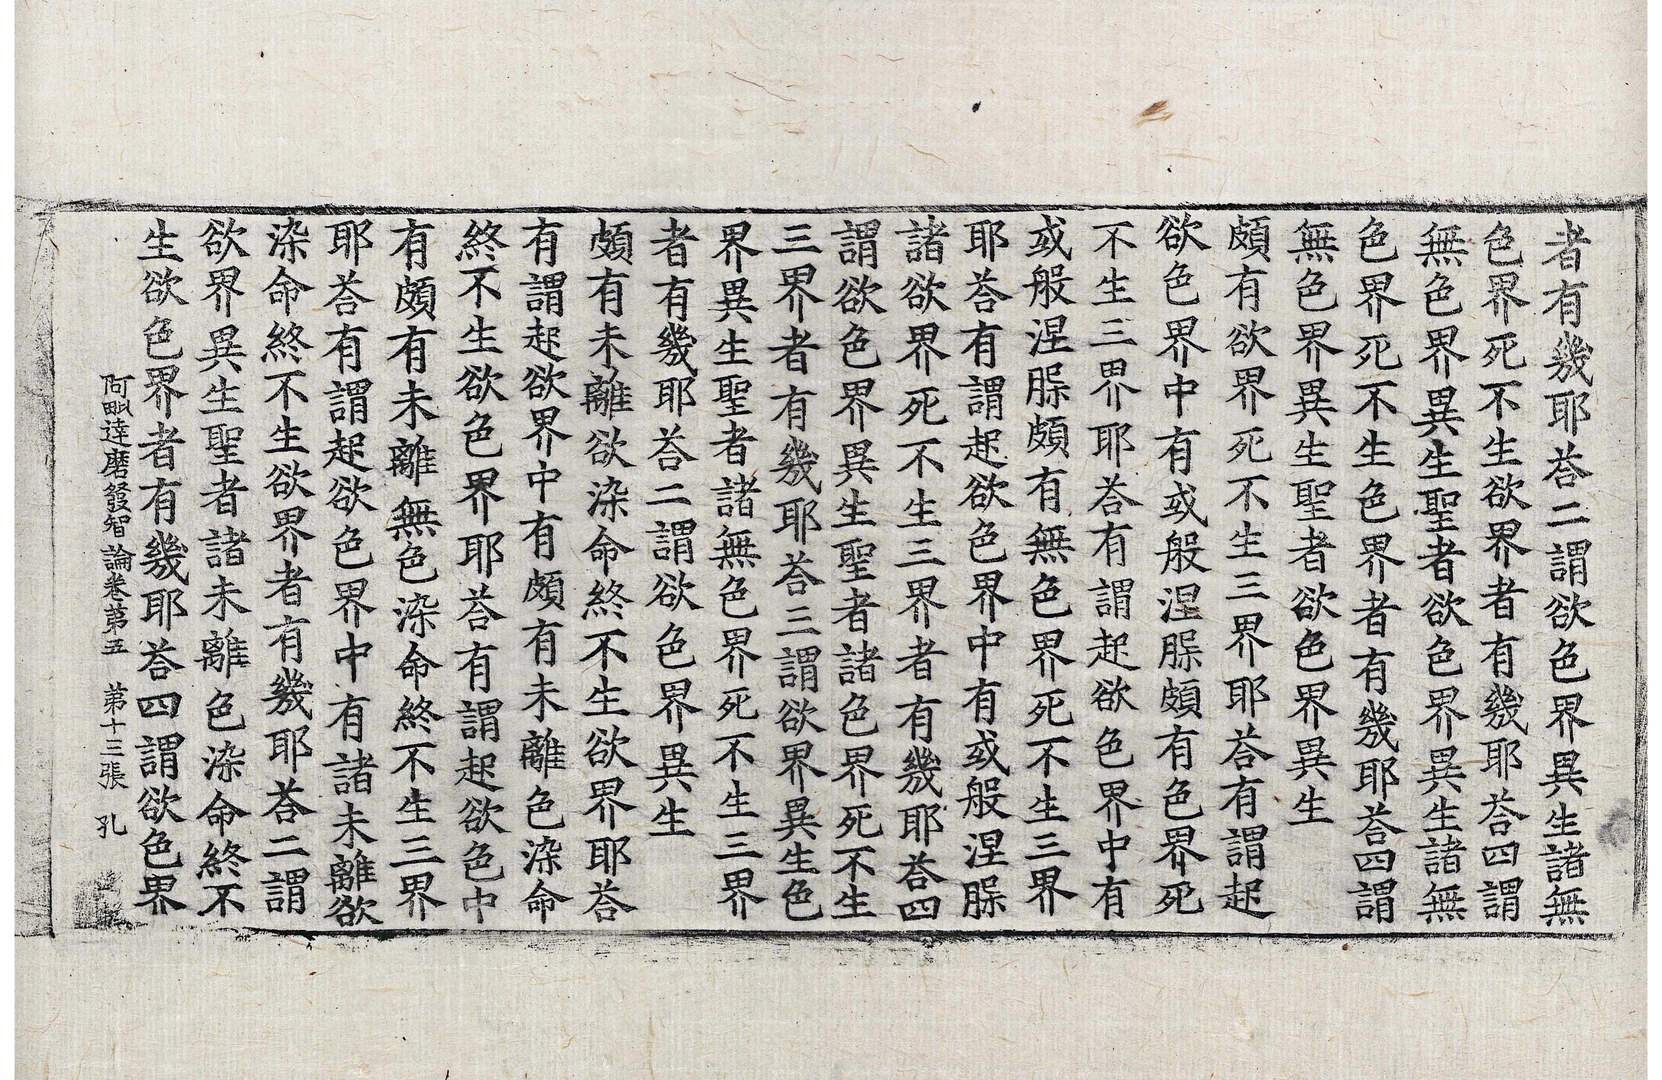 者有幾耶荅二謂欲色界異生諸無
色界死不生欲界者有幾耶荅四謂
無色界異生聖者欲色界異生諸無
色界死不生色界者有幾耶荅四謂
無色界異生聖者欲色界異生
頗有欲界死不生三界耶荅有謂起
欲色界中有或般涅腂頗有色界死
不生三界耶荅有謂起欲色界中有
或般涅腂頗有無色界死不生三界
耶荅有謂起欲色界中有或般涅腂
諸欲界死不生三界者有幾耶荅四
謂欲色界異生聖者諸色界死不生
三界者有幾耶荅三謂欲界異生色
界異生聖者諸無色界死不生三界
者有幾耶荅二謂欲色界異生
頗有未離欲染命終不生欲界耶荅
有謂起欲界中有頗有未離色染命
終不生欲色界耶荅有謂起欲色中
有頗有未離無色染命終不生三界
耶荅有謂起欲色界中有諸未離欲
染命終不生欲界者有幾耶荅二謂
欲界異生聖者諸未離色染命終不
生欲色界者有幾耶荅四謂欲色界
阿毗達磨發智論卷第五 第十三張 孔